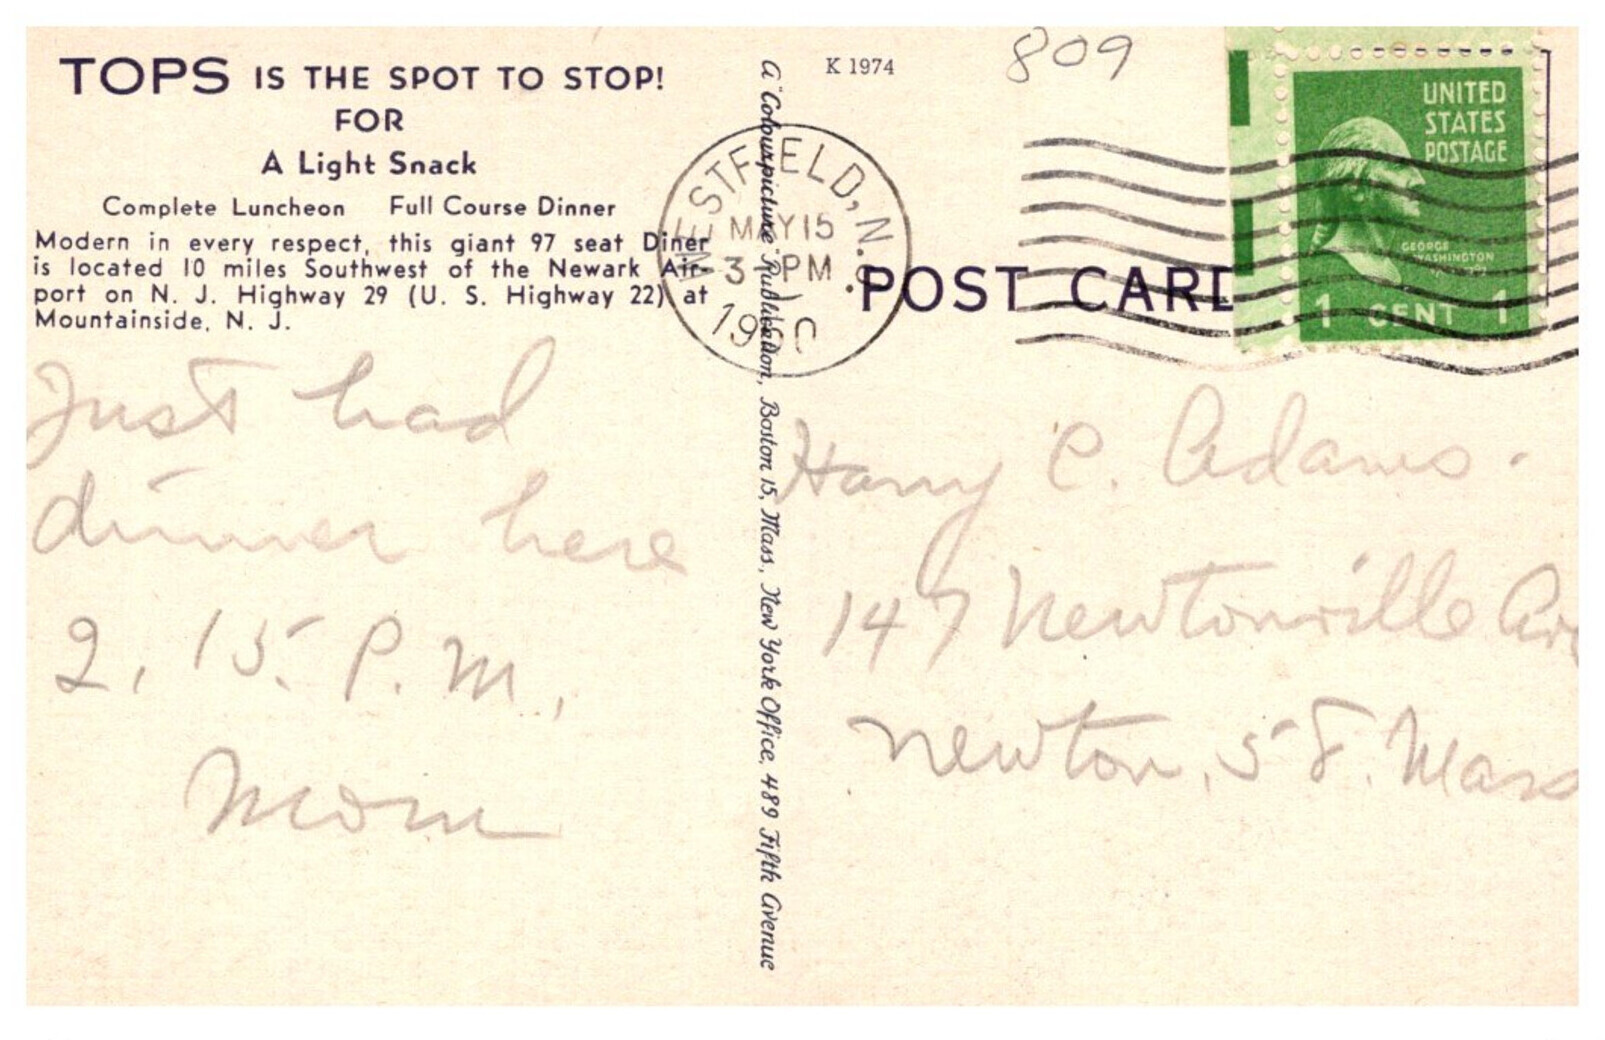 TOPS IS THE SPOT TO STOP!
FOR
A Light Snack
Complete Luncheon Full Course Dinner
Modern in every respect, this giant 97 seat Diner
is located 10 miles Southwest of the Newark Air-
port on N. J. Highway 29 (U. S. Highway 22) at
Mountainside, N. J.
Just had
dinner here
2,15 P.M.,
Mom
A "Colourpicture" Publication, Boston 15, Mass., New York Office, 489 Fifth Avenue
K 1974
809
WESTFIELD, N.J.
MAY 15
3-PM
1950
POST CARD
UNITED
STATES
POSTAGE
GEORGE
WASHINGTON
1 CENT 1
Harry C. Adams.
147 Newtonville Ave
Newton, 58. Mass